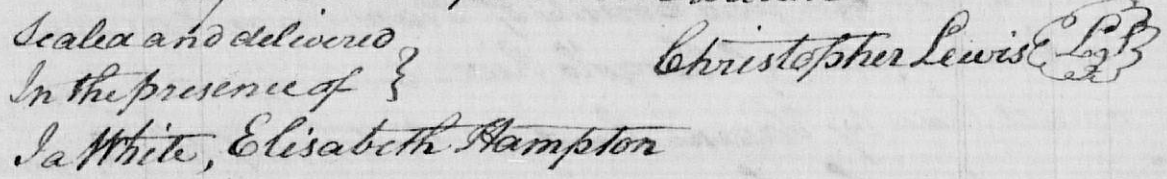 Sealed and delivered
In the presence of }
Christopher Lewis {LS}
Ja White, Elisabeth Hampton